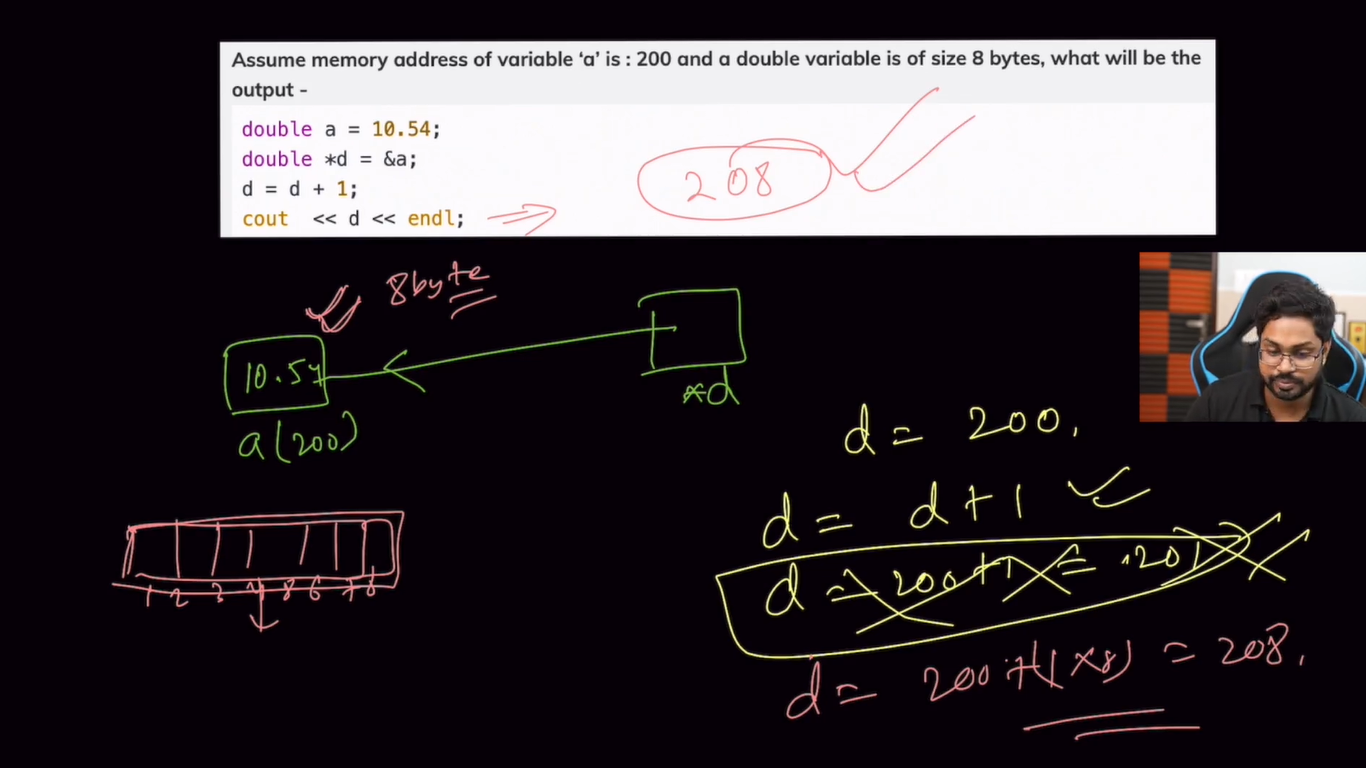 Assume memory address of variable ‘a’ is : 200 and a double variable is of size 8 bytes, what will be the
output -
double a = 10.54;
double *d = &a;
d = d + 1;
cout << d << endl;
208
8byte
10.54
a(200)
*d
d = 200.
d = d+1
d = 200+1 = 201
d = 200+(1×8) = 208.
1 2 3 4 5 6 7 8